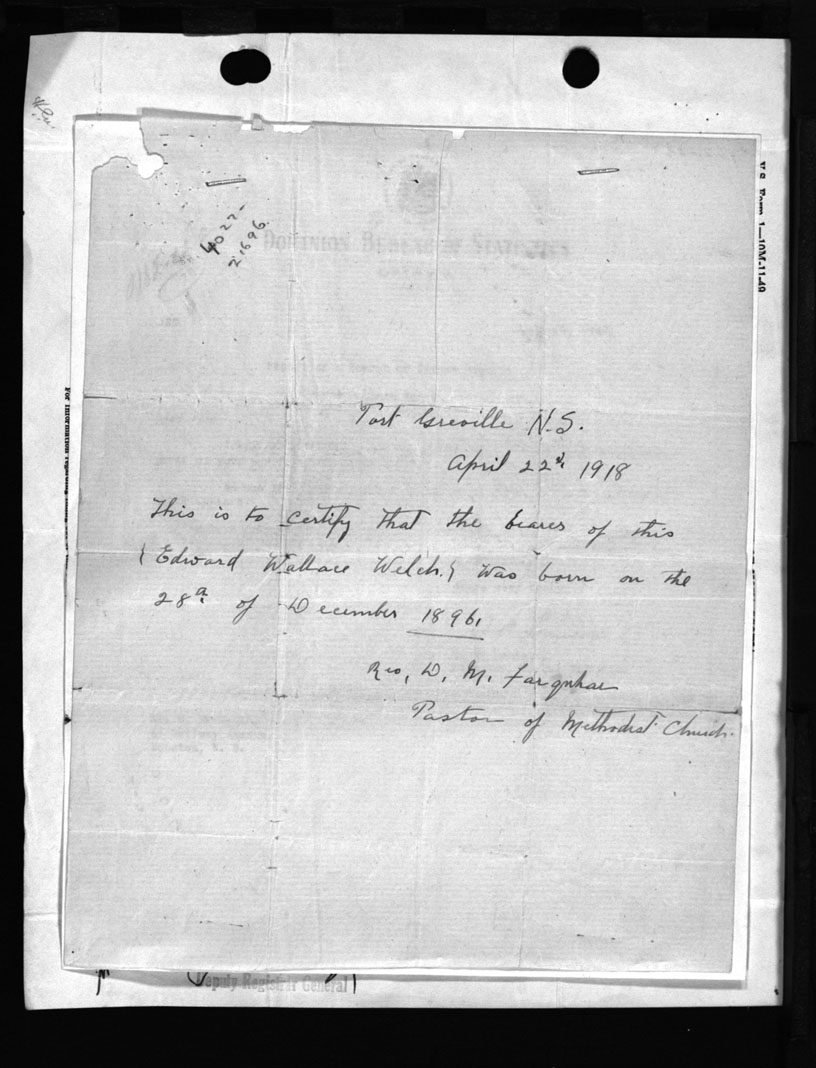 4022-
21696
DOMINION BUREAU OF STATISTICS
V.S. Form 1-10M-11-49
Port Greville N.S.
April 22nd, 1918
This is to certify that the bearer of this
(Edward Wallace Welch.) was born on the
28th of December 1896.
Rev, D. M. Farquhar
Pastor of Methodist Church.
Deputy Registrar General